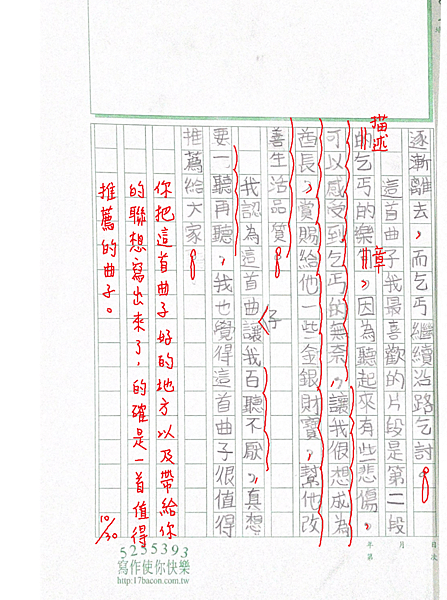 逐漸離去，而乞丐繼續沿路乞討。
這首曲子我最喜歡的片段是第二段
描述
的乞丐的樂章，因為聽起來有些悲傷，
可以感受到乞丐的無奈，讓我很想成為
酋長，賞賜給他一些金銀財寶，幫他改
善生活品質。
我認為這首曲子讓我百聽不厭，真想
要一聽再聽，我也覺得這首曲子很值得
推薦給大家。
你把這首曲子好的地方以及帶給你
的聯想寫出來了，的確是一首值得
推薦的曲子。
10/30
年 月 日
第 次
5255393
寫作使你快樂
http://17bacon.com.tw